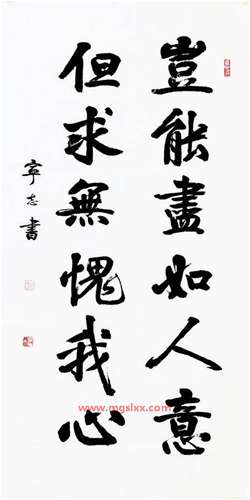 豈能盡如人意
但求無愧我心
寧志書
www.mgslxx.com